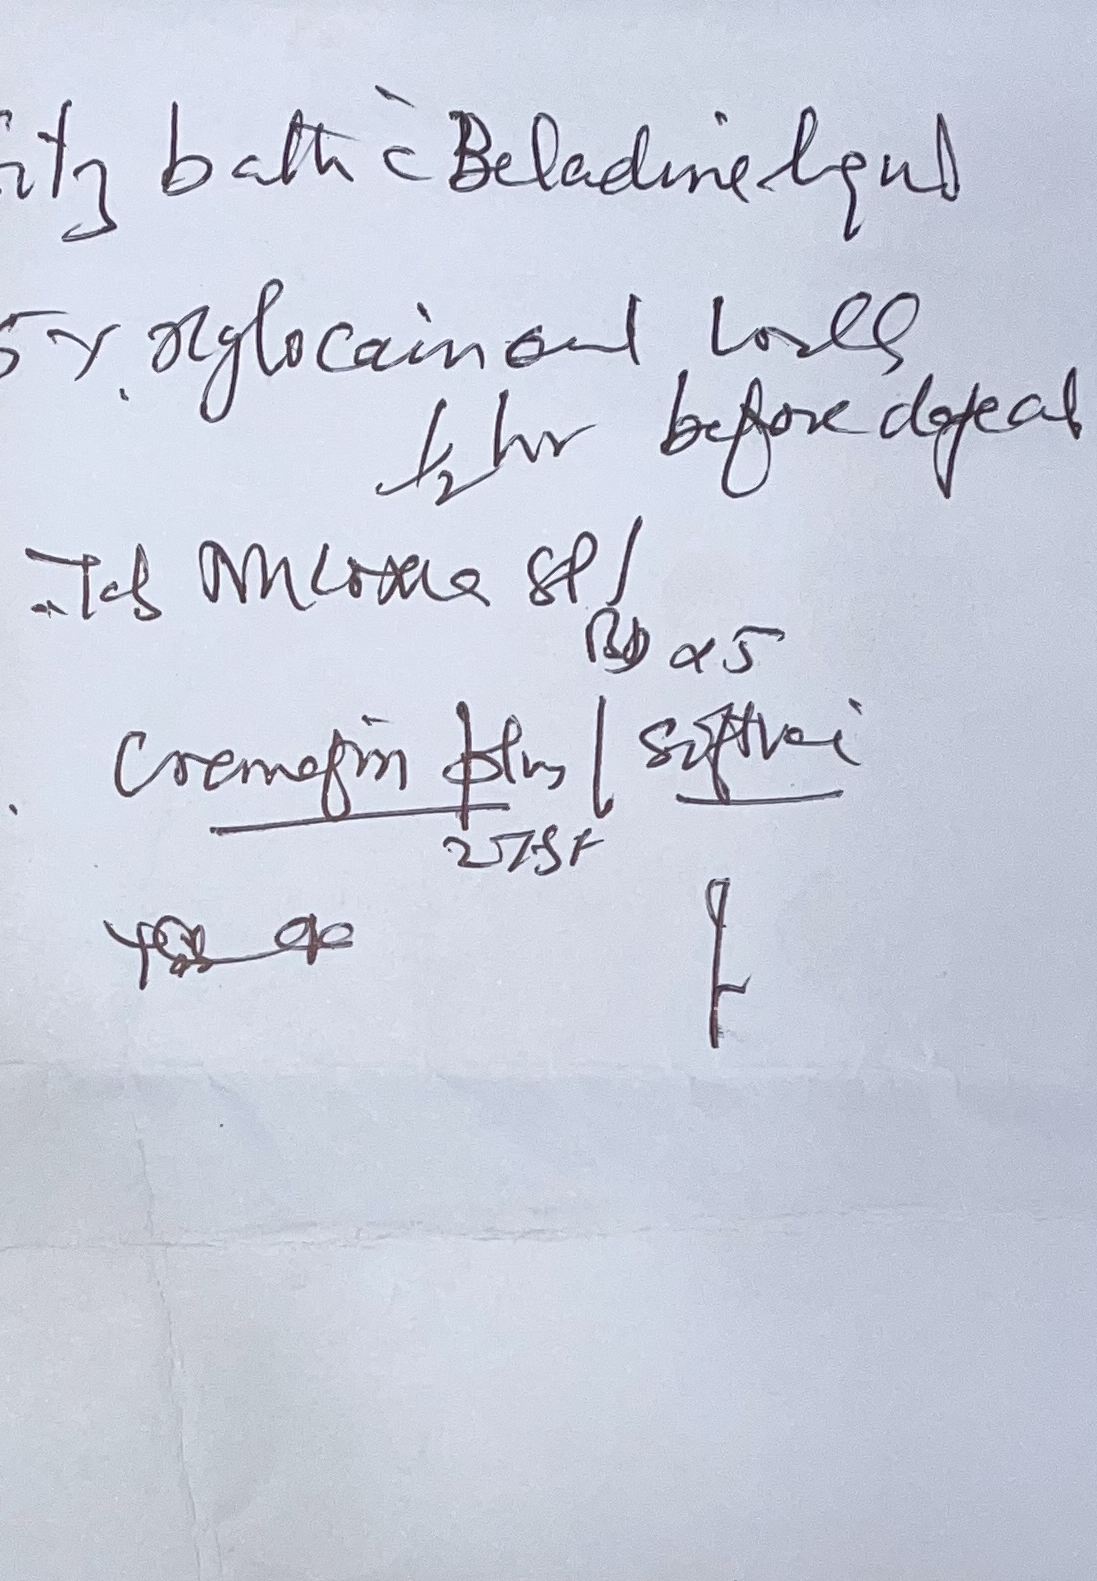 bath c̄ Beladine liqud
5% xylocain oint locally
1/2 hr before defecat
Tab SP/
BD x 5
Cremafin plus / Softvei
2TSF